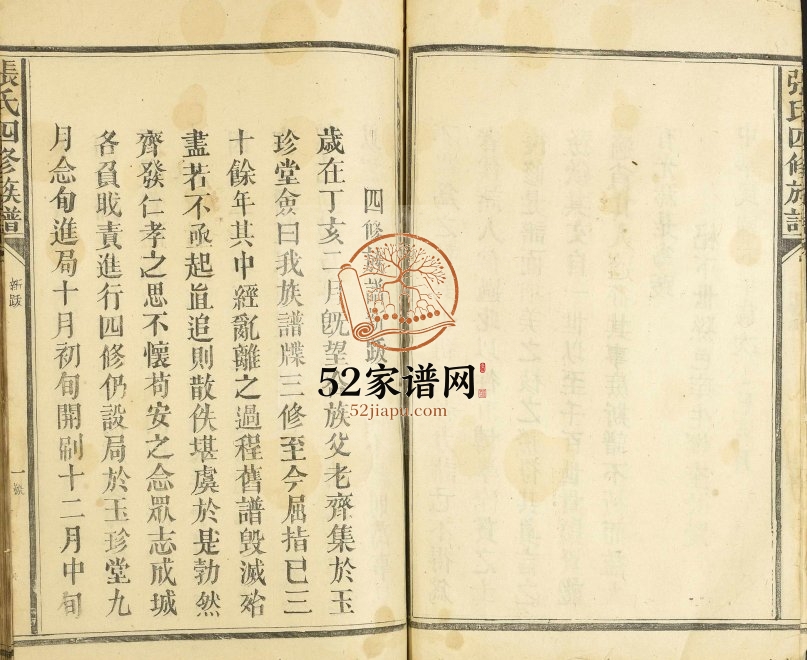 張氏四修族譜
四修族譜新跋
歲在丁亥二月旣望族父老齊集於玉
珍堂僉曰我族譜牒三修至今屈指已三
十餘年其中經亂離之過程舊譜毀滅殆
盡若不亟起直追則散佚堪虞於是勃然
齊發仁孝之思不懷苟安之念眾志成城
各負戝責進行四修仍設局於玉珍堂九
月念旬進局十月初旬開刷十二月中旬
張氏四修族譜
新跋
一
52家谱网
52jiapu.com